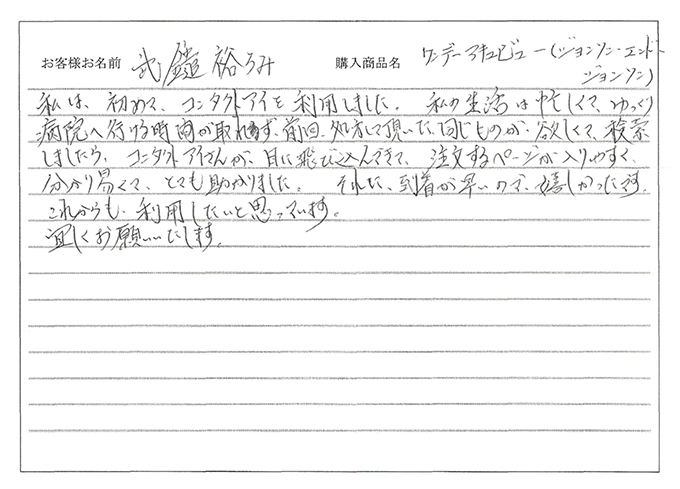 お客様お名前 武鑓裕うみ 購入商品名 ワンデーアキュビュー(ジョンソン・エンド
ジョンソン)
私は、初めて、コンタクトアイを利用しました。私の生活は忙しくて、ゆっくり
病院へ行ける時間が取れず、前回、処方して頂いた、同じものが、欲しくて、検索
しましたら、コンタクトアイさんが、目に飛び込んできて、注文するページが入りやすく、
分かり易くて、とても助かりました。それに、到着が早いので、嬉しかったです。
これからも、利用したいと思っています。
宜しくお願いいたします。